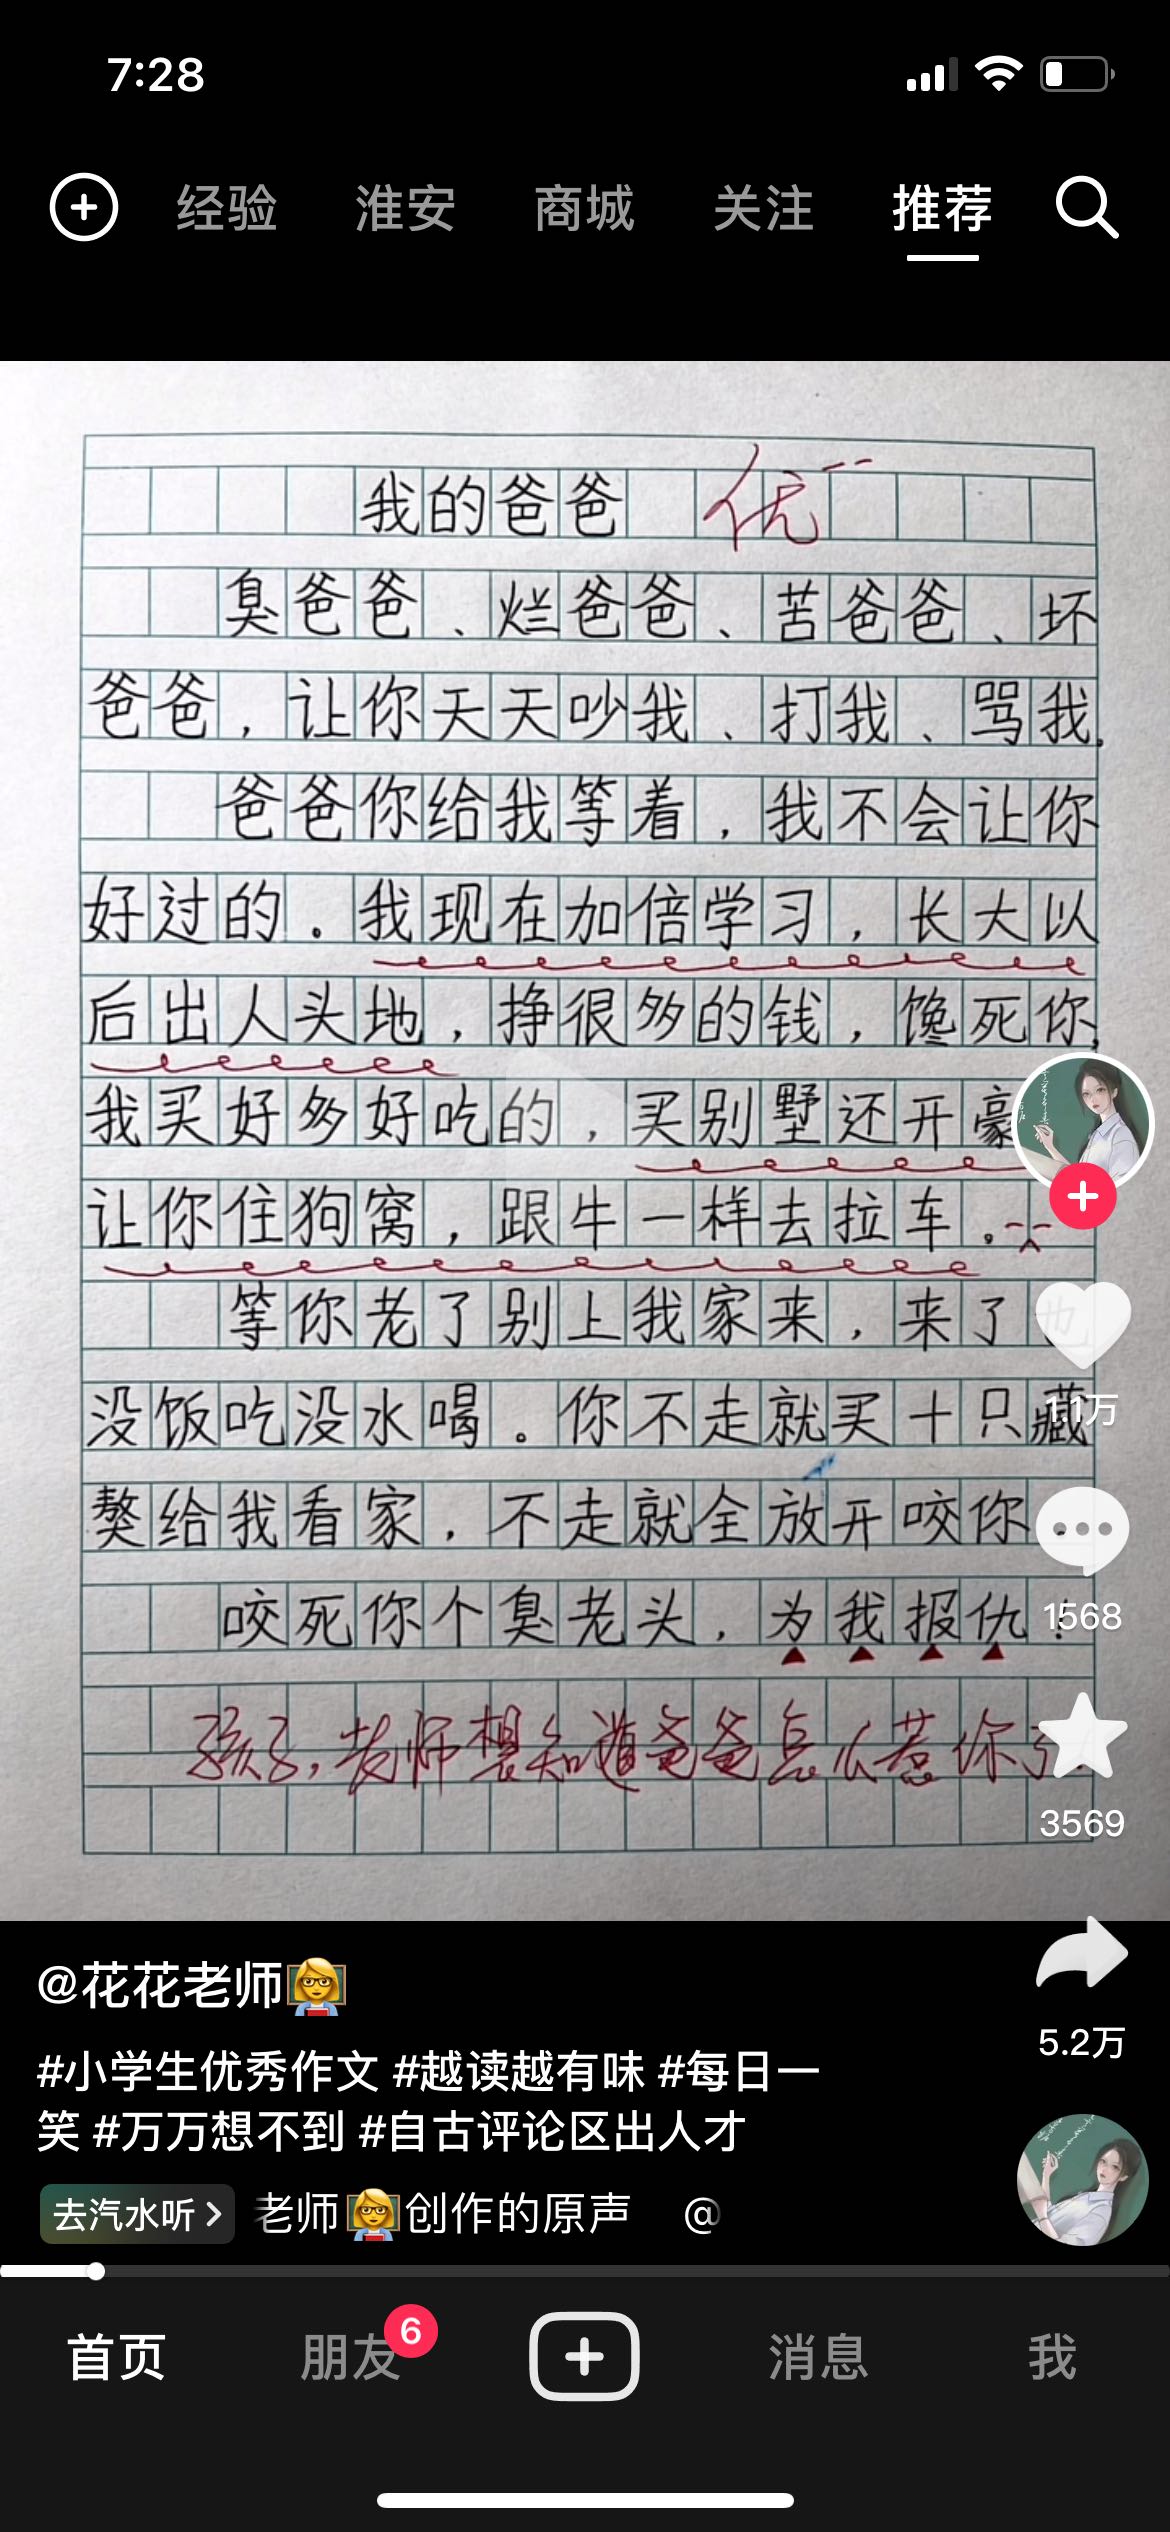 7:28
经验 淮安 商城 关注 推荐
我的爸爸 优
臭爸爸、烂爸爸、苦爸爸、坏
爸爸，让你天天吵我、打我、骂我。
爸爸你给我等着，我不会让你
好过的。我现在加倍学习，长大以
后出人头地，挣很多的钱，馋死你，
我买好多好吃的，买别墅还开豪
让你住狗窝，跟牛一样去拉车。
等你老了别上我家来，来了也
没饭吃没水喝。你不走就买十只藏
獒给我看家，不走就全放开咬你
咬死你个臭老头，为我报仇！
孩子，老师想知道爸爸怎么惹你了
1.1万
1568
3569
5.2万
@花花老师
#小学生优秀作文 #越读越有味 #每日一
笑 #万万想不到 #自古评论区出人才
去汽水听 > 老师 创作的原声 @
首页 朋友 6 消息 我